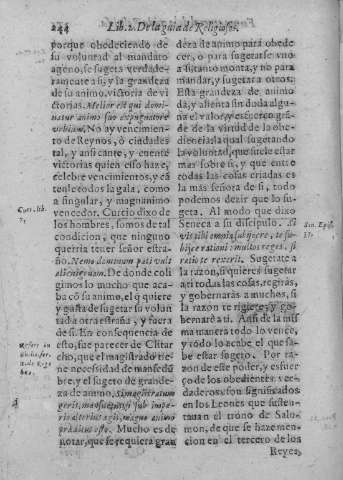 244 Lib. 2. De la guia de Religiosos.
porque obedeciendo de
su voluntad al mandato
ageno, se sugeta verdade-
ramente a si, y la grandeza
de su animo, victoria de vic-
torias. Melior est qui domi-
natur animo suo expugnatore
urbium. No ay vencimien-
to de Reynos, ò ciudades
tal, y ansi cante, y cuente
victorias quien esso haze,
celebre vencimientos, y cã
tenle todos la gala, como
a singular, y magnanimo
vencedor. Curcio dixo de
los hombres, somos de tal
condicion, que ninguno
querria tener señor estra-
ño. Nemo dominum pati vult
alienigenam. De donde coli
gimos lo mucho que aca-
ba cõ su animo, el q̃ quiere
y gusta de sugetar su volun
tad a otra estraña, y fuera
de si. En consequencia de
esto, fue parecer de Clitar
cho, que el magistrado tie-
ne necessidad de mansedũ
bre, y el sugeto de grande-
za de animo. Si magistratum
gerit, mansuetus; si sub impe-
rio alterius agit, magno animo
præditus esto. Mucho es de
notar, que se requiera gran
Curt. lib.
7.
Refert
deza de animo para obede
cer, o para sugetarse vno
a su tanto monta, y no para
mandar, y sugetar a otros:
Esta grandeza de animo
da, y alienta sin duda algu-
na el valor, y esfuerço grã-
de de la virtud de la obe-
diencia, la qual sugetando
la voluntad, que suele estar
mas sobre si, y que entre
todas las cosas criadas es
la mas señora de si, todo
podemos dezir que lo su-
geta. Al modo que dixo
Seneca a su discipulo. Si
vis tibi omnia subijcere, te su-
bijce rationi: multos reges, si
ratio te rexerit. Sugetate a
la razon, si quieres sugetar
a ti todas las cosas, regiràs,
y gobernaràs a muchos, si
la razon te rigiere, y go-
bernare a ti. Ansi de la mis
ma manera todo lo vence,
y todo lo acabe el que sa-
be estar sugeto. Por ra-
zon de este poder, y esfuer-
ço de los obedientes ver-
daderos, son significados
en los Leones que susten-
tauan el trono de Salo-
mon, de que se haze men-
cion en el tercero de los
Reyes,
Sen. Epist.
37.